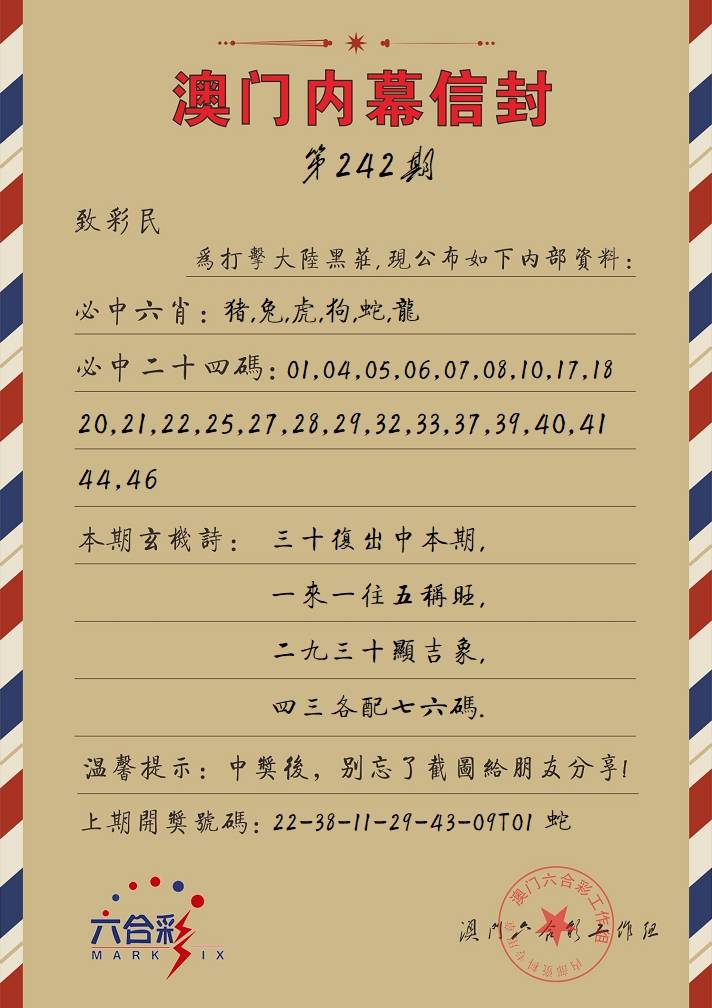 澳门内幕信封
第242期
致彩民
爲打擊大陸黑莊,現公布如下内部資料:
必中六肖: 猪,兔,虎,狗,蛇,龍
必中二十四碼: 01,04,05,06,07,08,10,17,18
20,21,22,25,27,28,29,32,33,37,39,40,41
44,46
本期玄機詩: 三十復出中本期,
一來一往五稱旺,
二九三十顯吉象,
四三各配七六碼.
温馨提示: 中獎後, 别忘了截圖給朋友分享!
上期開獎號碼: 22-38-11-29-43-09T01 蛇
六合彩
MARK SIX
澳门六合彩工作组
澳门六合彩工作组
内部资料专用章